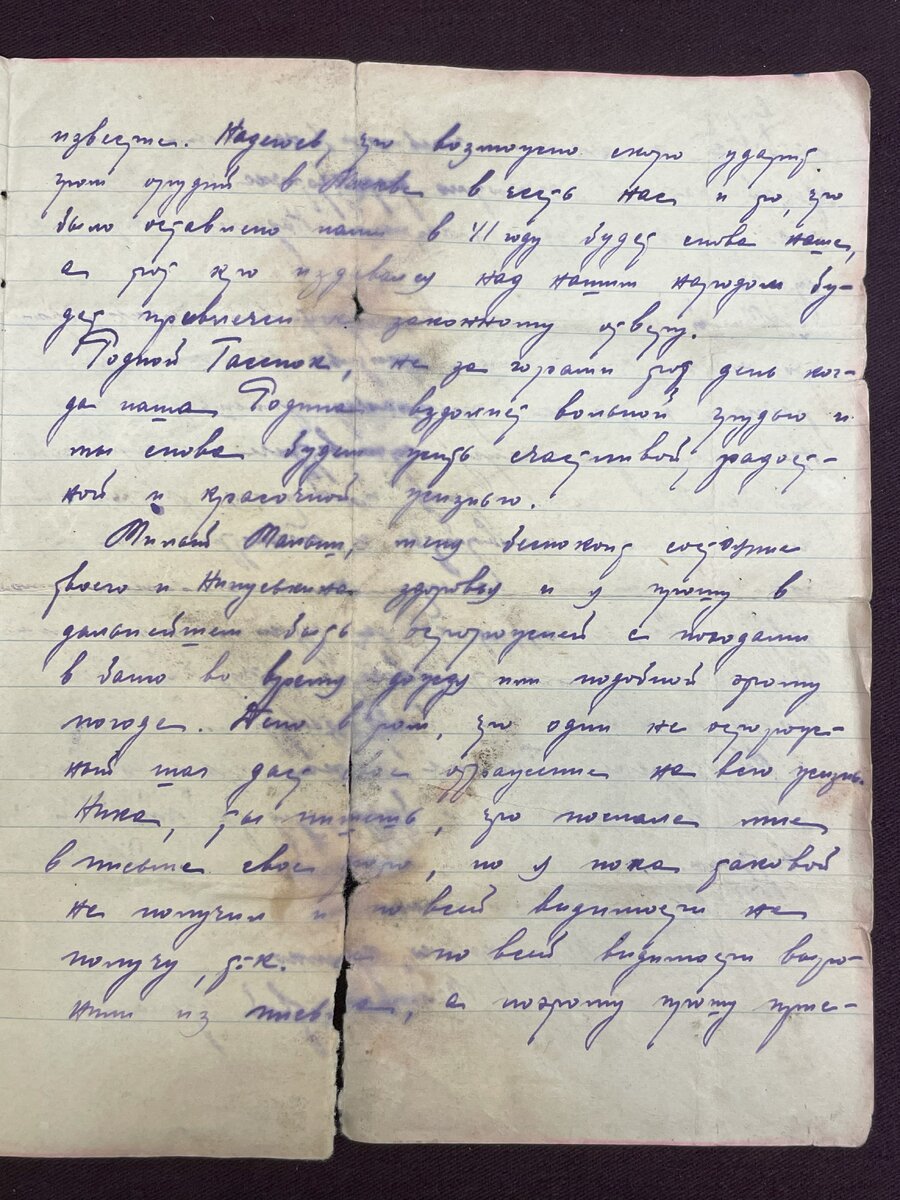 известие. Надеюсь, что возможно скоро ударит
гром орудий в Москве в честь нас и то, что
было оставлено нами в 41 году будет снова наше,
а тот кто издевался над нашим народом бу-
дет привлечен к законному ответу.
Родной Тасенок, не за горами тот день ког-
да наша Родина вздохнет вольной грудью и
мы снова будем жить счастливой, радост-
ной и красочной жизнью.
Милый Малыш, меня беспокоит состояние
твоего и Нинуськина здоровья и я прошу в
дальнейшем быть осторожней с походами
в баню во время дождя или подобной этому
погоде. Дело в том, что один не осторож-
ный шаг даст отражение на всю жизнь.
Ника, ты пишешь, что послала мне
в письме свое фото, но я пока таковой
не получил и по всей видимости не
получу, т-к. по всей видимости выро-
нили из письма, а поэтому прошу при-